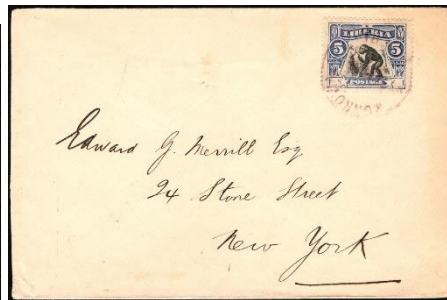 LIBERIA
5 5
POSTAGE
Edward G. Merrill Esq
24 Stone Street
New York